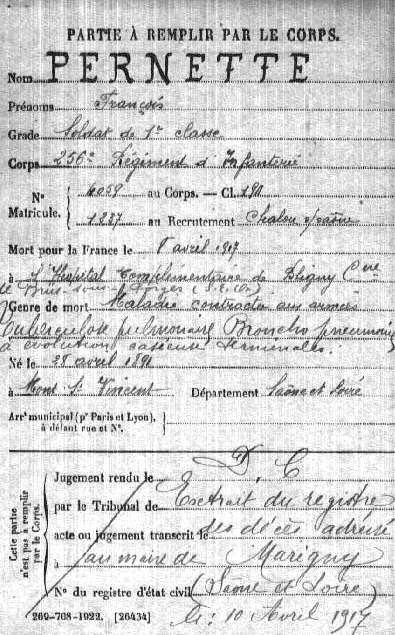 PARTIE À REMPLIR PAR LE CORPS.
Nom PERNETTE
Prénoms François
Grade Soldat de 1re classe
Corps 256e Régiment d'Infanterie
N° Matricule. 4059 au Corps. — Cl.
1237 au Recrutement Chalon s/Saône
Mort pour la France le 8 avril 1917
à l'Hôpital Complémentaire de Bligny Cne
de Briis-sous-Forges (S. et O.)
Genre de mort Maladie contractée aux armées
Tuberculose pulmonaire Broncho pneumonie
à évolution caséeuse
Né le 28 avril
à Mont St Vincent Département Saône et Loire
Arrt municipal (pr Paris et Lyon),
à défaut rue et N°.
Cette partie n'est pas à remplir par le Corps.
D. C
Jugement rendu le
par le Tribunal de Extrait du registre
acte ou jugement transcrit le des décès adressé
à au maire de Marigny
N° du registre d'état civil (Saone et Loire)
le: 10 Avril 1917
269-708-1922. [26434]